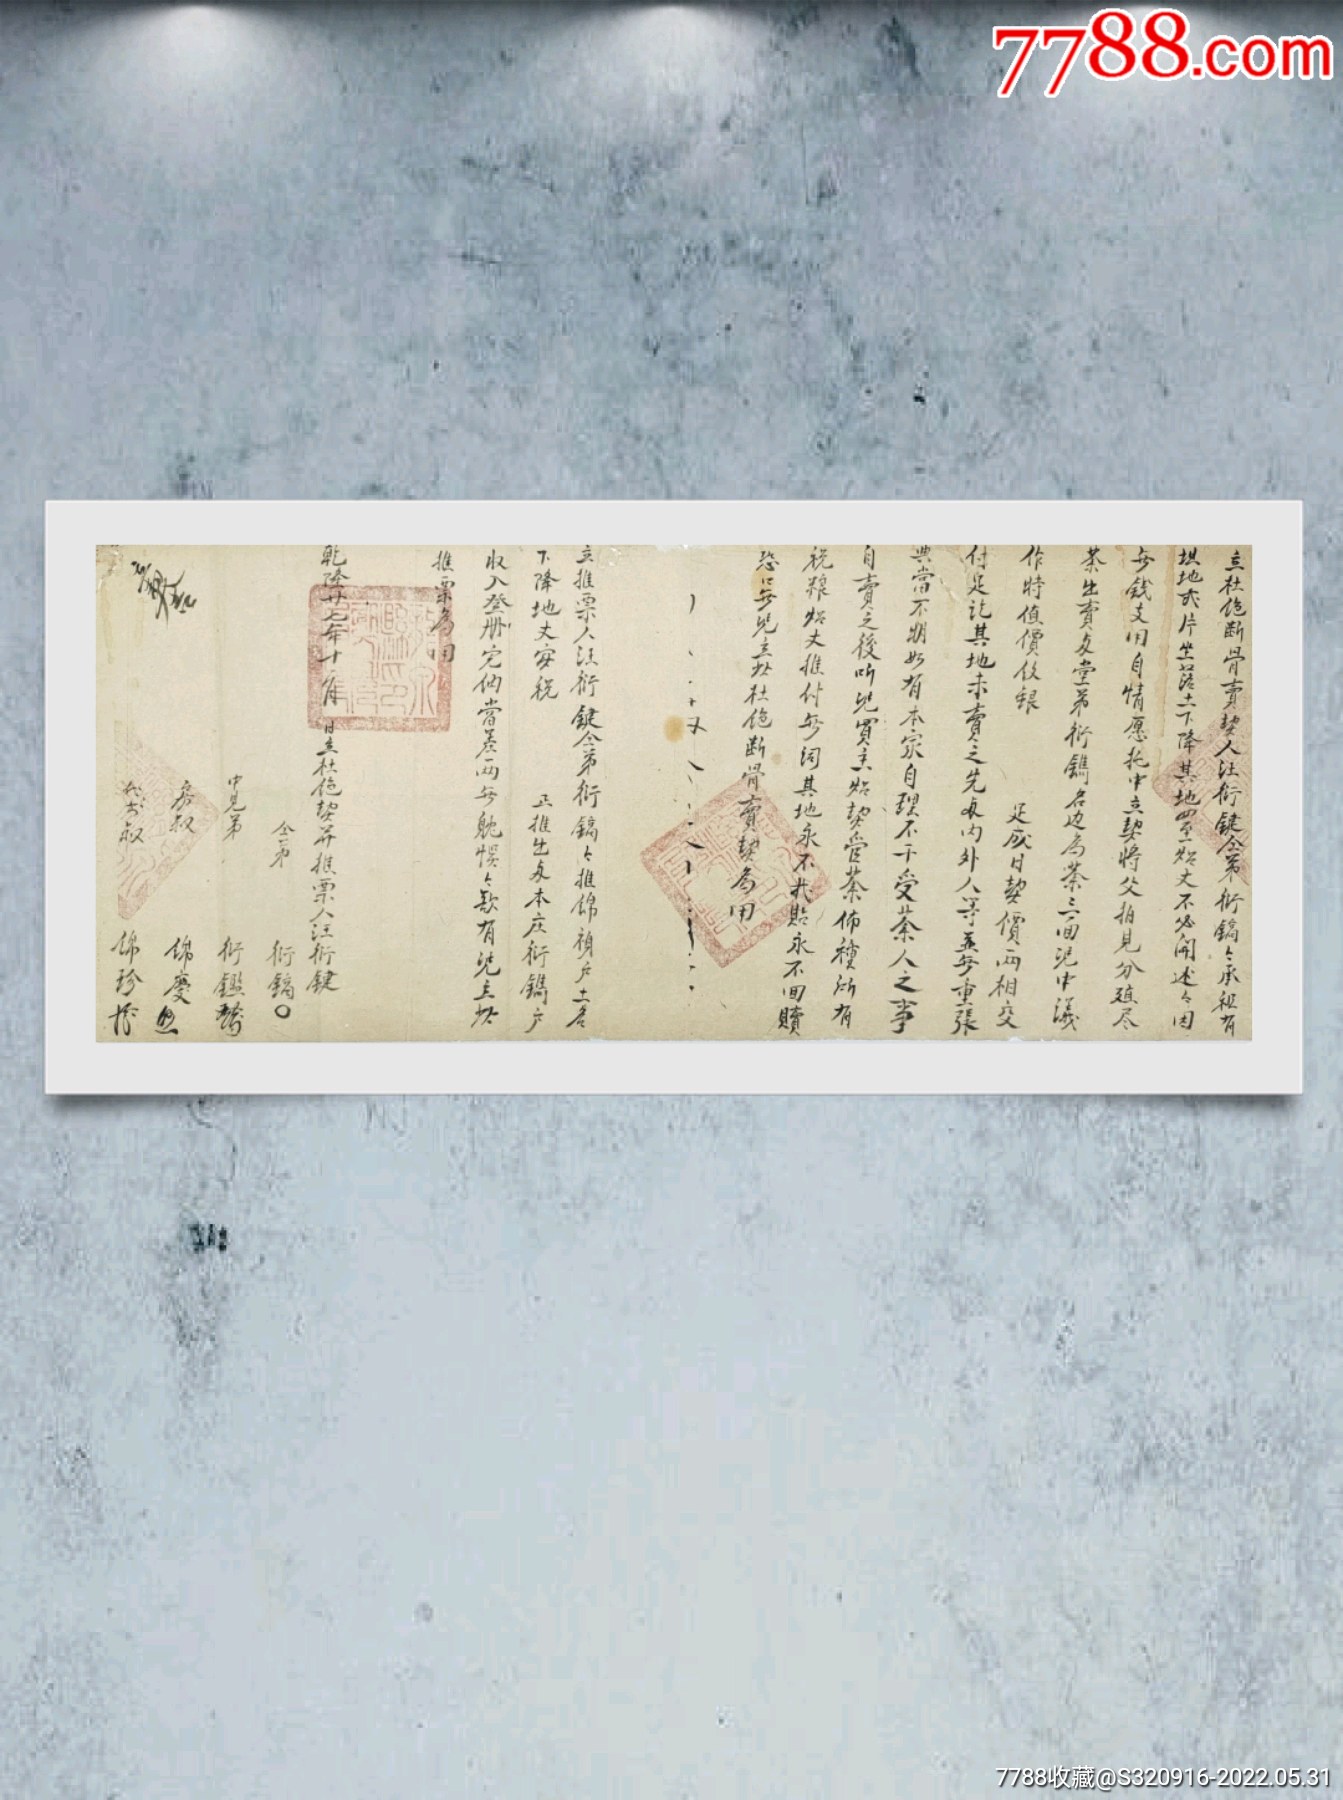 7788.com
立杜絕断骨賣契人汪衍鍵仝弟衍鎬今承祖有
坦地弍片坐落土下降其地四至照丈不必開述今因
無錢支用自情愿托中立契將父拍見分殖尽
業出賣與堂弟衍鐫名边為業三面凴中議
作時值價銀
足成日契價両相交
付足訖其地未賣之先與内外人等並無重張
典當不明如有本家自理不干受業人之事
自賣之後听凴買主照契管業佈種所有
税粮照丈推付無詞其地永不找貼永不回贖
恐口無凴立此杜絕断骨賣契為用
立推票人汪衍鍵仝弟衍鎬今推錦禎户土名
下降地丈寔税 正推出與本庄衍鐫户
收入登册完納當差両無躭悞今欲有凴立此
推票為用
乾隆廿七年十月 日立杜絕契并推票人汪衍鍵
仝弟 衍鎬
中見弟 衍鑑
房叔 錦慶
叔 錦珍
7788收藏@S320916-2022.05.31